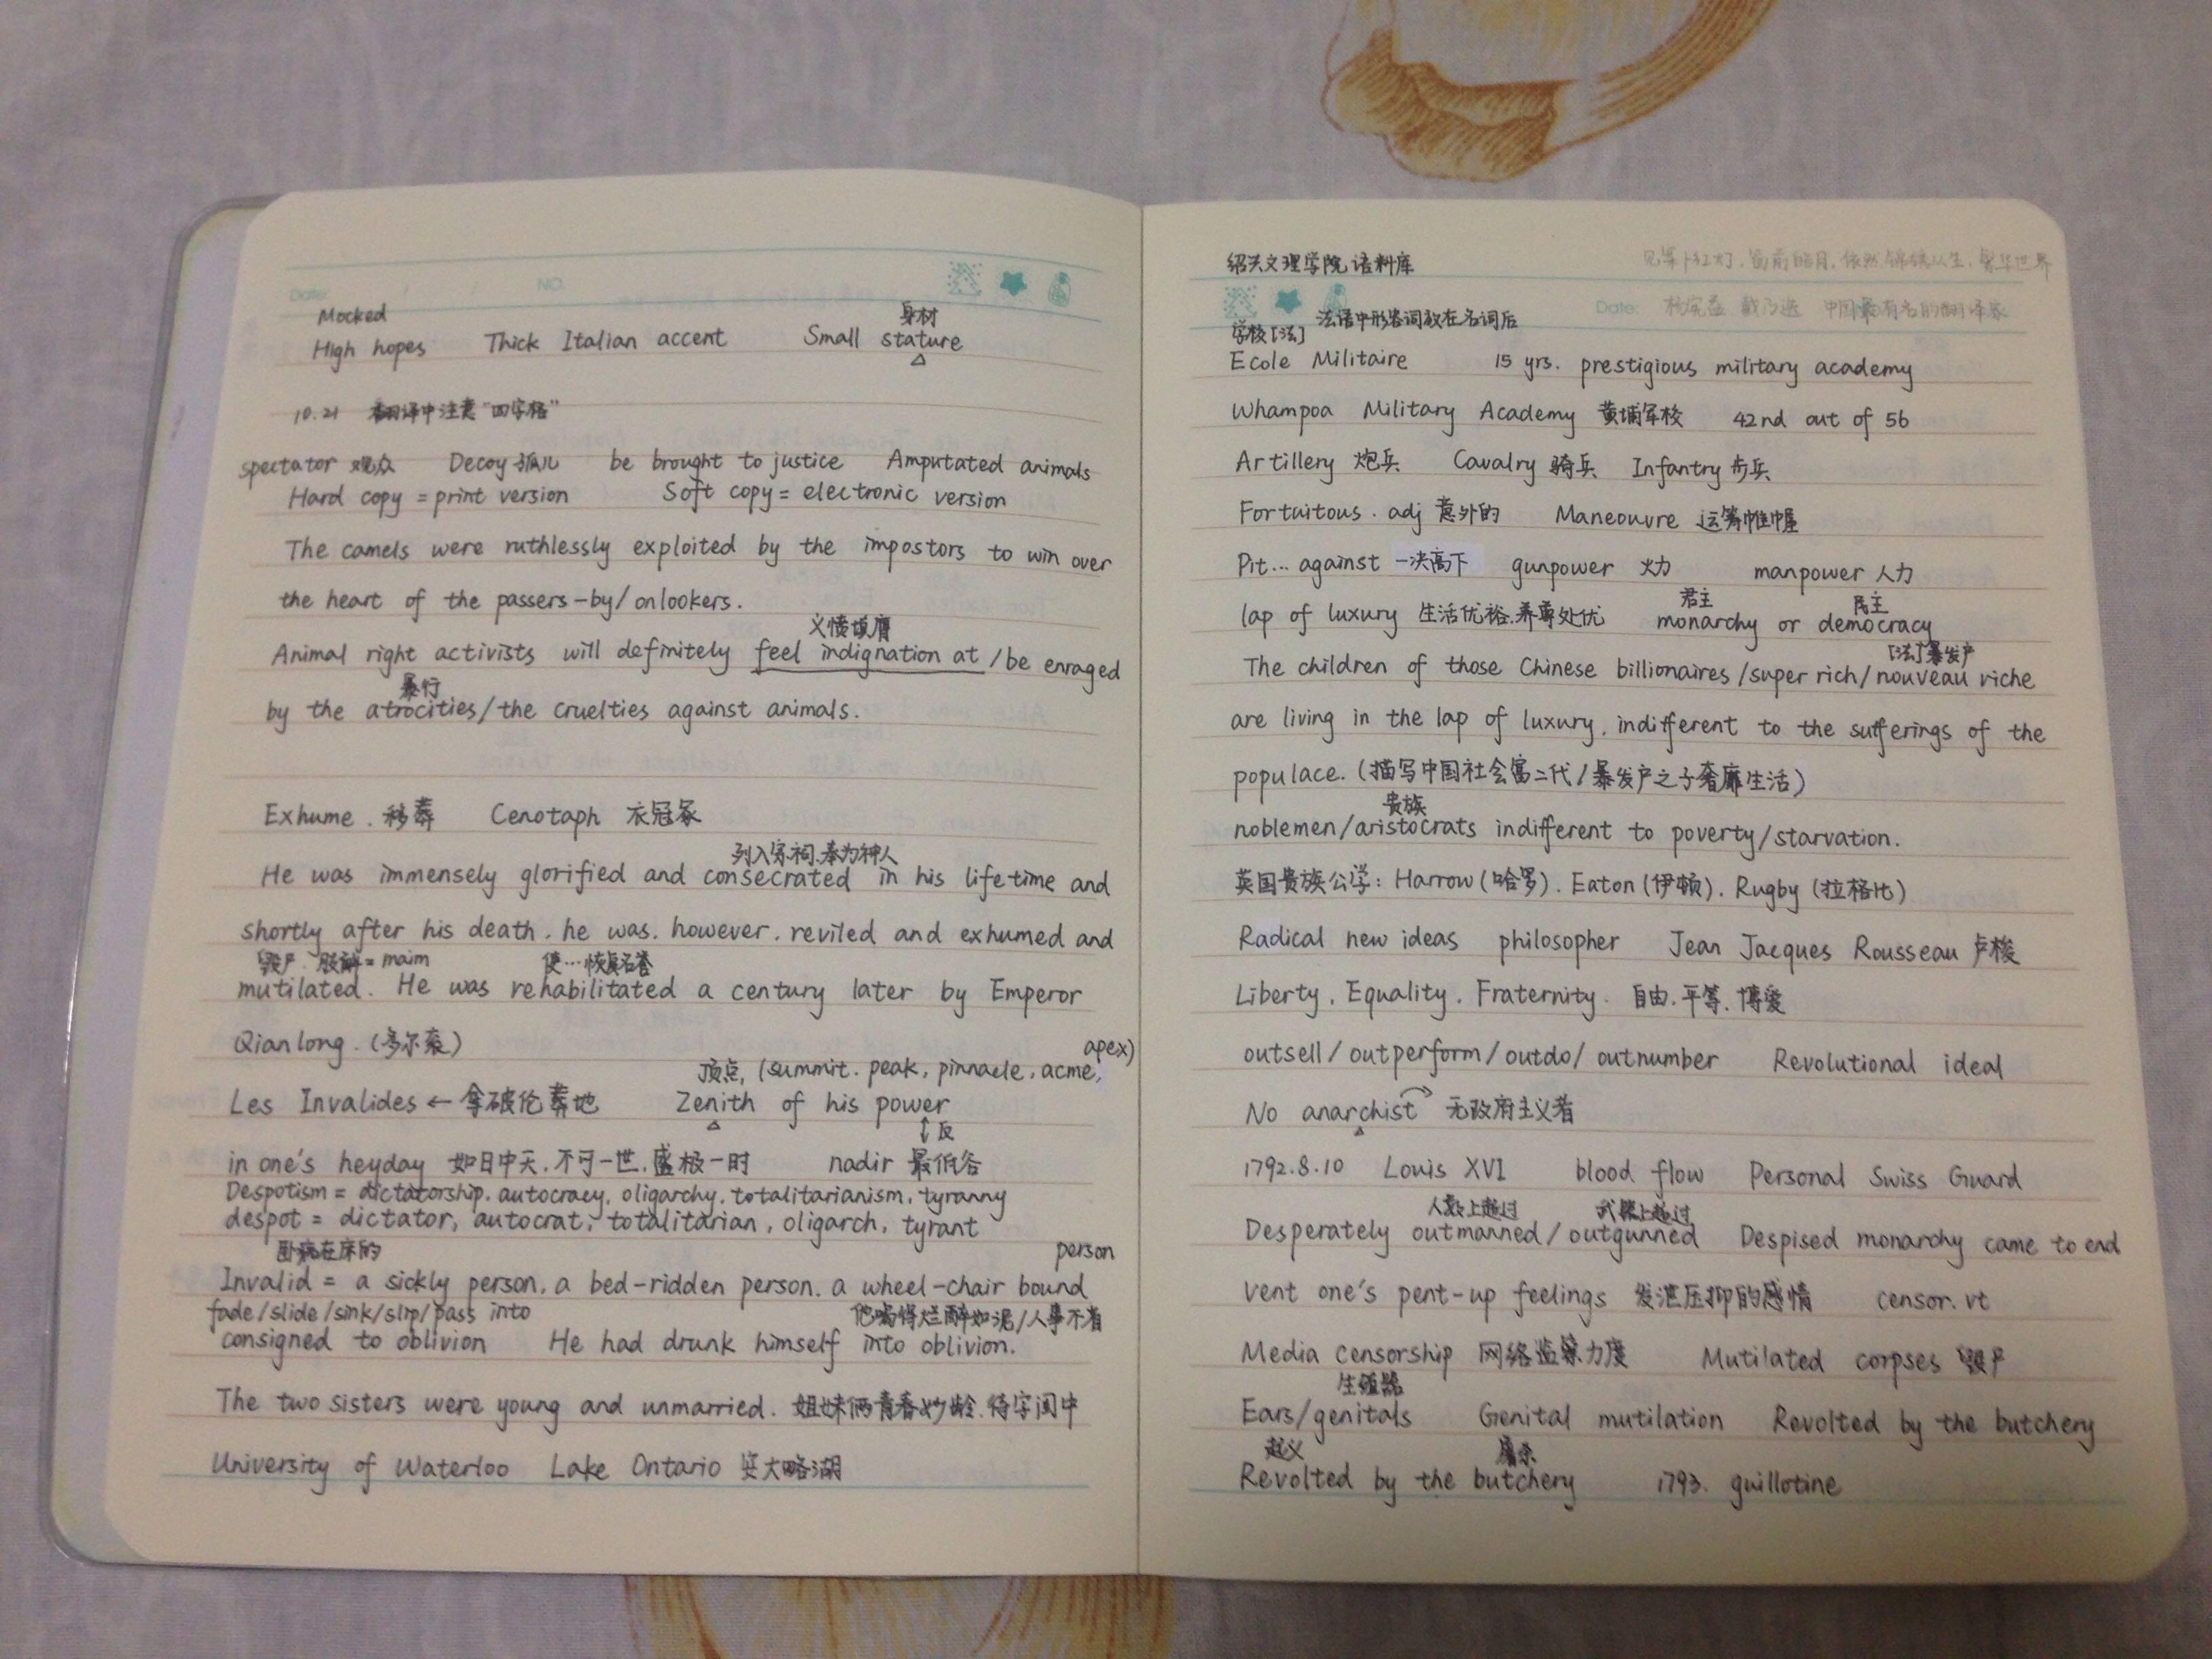 Date: NO.
Mocked 身材
High hopes Thick Italian accent Small stature
10.21 翻译中注意“四字格”
spectator 观众 Decoy 孤儿 be brought to justice Amputated animals
Hard copy = print version Soft copy = electronic version
The camels were ruthlessly exploited by the impostors to win over
the heart of the passers-by/onlookers.
义愤填膺
Animal right activists will definitely feel indignation at /be enraged
暴行
by the atrocities/the cruelties against animals.
Exhume. 移葬 Cenotaph 衣冠冢
列入宗祠.奉为神人
He was immensely glorified and consecrated in his lifetime and
shortly after his death. he was. however. reviled and exhumed and
毁尸.肢解= maim 使…恢复名誉
mutilated. He was rehabilitated a century later by Emperor
Qianlong. (多尔衮)
顶点, (summit. peak, pinnacle, acme, apex)
Les Invalides ← 拿破伦葬地 Zenith of his power
↕反
in one's heyday 如日中天.不可一世.盛极一时 nadir 最低谷
Despotism = dictatorship. autocracy, oligarchy. totalitarianism, tyranny
despot = dictator, autocrat, totalitarian, oligarch, tyrant
卧病在床的
Invalid = a sickly person, a bed-ridden person. a wheel-chair bound person
fade/slide/sink/slip/pass into 他喝得烂醉如泥/人事不省
consigned to oblivion He had drunk himself into oblivion.
The two sisters were young and unmarried. 姐妹俩青春妙龄.待字闺中
University of Waterloo Lake Ontario 安大略湖
绍兴文理学院 语料库
Date: 中国最有名的翻译家
学校[法] 法语中形容词放在名词后
Ecole Militaire 15 yrs. prestigious military academy
Whampoa Military Academy 黄埔军校 42nd out of 56
Artillery 炮兵 Cavalry 骑兵 Infantry 步兵
Fortuitous. adj 意外的 Maneouvre 运筹帷幄
Pit... against 一决高下 gunpower 火力 manpower 人力
君主 民主
lap of luxury 生活优裕.养尊处优 monarchy or democracy
[法]暴发户
The children of those Chinese billionaires/super rich/nouveau riche
are living in the lap of luxury, indifferent to the sufferings of the
populace. (描写中国社会富二代/暴发户之子奢靡生活)
贵族
noblemen/aristocrats indifferent to poverty/starvation.
英国贵族公学: Harrow (哈罗). Eaton (伊顿). Rugby (拉格比)
Radical new ideas philosopher Jean Jacques Rousseau 卢梭
Liberty. Equality. Fraternity. 自由.平等.博爱
outsell/outperform/outdo/outnumber Revolutional ideal
No anarchist 无政府主义者
1792.8.10 Louis XVI blood flow Personal Swiss Guard
人数上越过 武器上越过
Desperately outmanned/outgunned Despised monarchy came to end
vent one's pent-up feelings 发泄压抑的感情 censor. vt
Media censorship 网络监察力度 Mutilated corpses 毁尸
生殖器
Ears/genitals Genital mutilation Revolted by the butchery
起义 屠杀
Revolted by the butchery 1793. guillotine